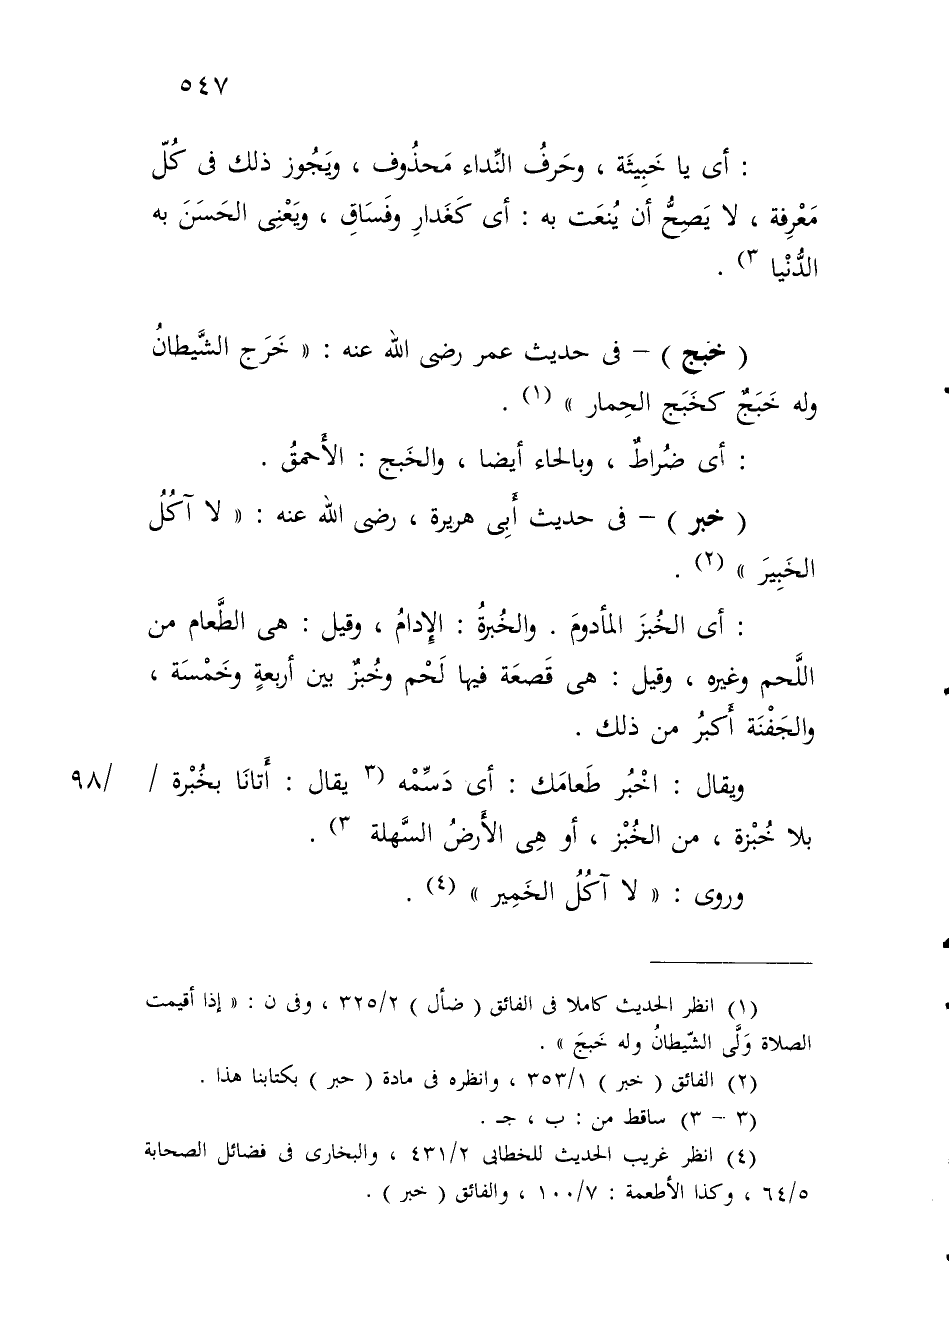 ٥٤٧
: أى يا خَبِيثَة ، وحَرفُ النِّداء مَحذُوف ، ويَجُوز ذلك فى كُلّ
مَعْرِفة ، لا يَصِحُّ أن يُنعَت به : أى كَغَدارِ وفَسَاقِ ، ويَعْنِى الحَسَنَ به
الدُّنْيا ٣) .
( خبج ) – فى حديث عمر رضى الله عنه : « خَرَج الشَّيطانُ
وله خَبَجٌ كخَبَج الحِمار » (١) .
: أى ضُراطٌ ، وبالحاء أيضا ، والخَبج : الأَحمقُ .
( خبر ) – فى حديث أَبِى هريرة ، رضى الله عنه : « لا آكُلُ
الخَبِيرَ » (٢) .
: أى الخُبزَ المأدومَ . والخُبرةُ : الإِدامُ ، وقيل : هى الطَّعام من
اللَّحم وغيره ، وقيل : هى قَصعَة فيها لَحْم وخُبزٌ بين أربعةٍ وخَمْسَة ،
والجَفْنَة أَكبرُ من ذلك .
ويقال : اخْبُر طَعامَك : أى دَسِّمْه (٣ يقال : أَتانَا بخُبْرة / /٩٨
بلا خُبْزة ، من الخُبْز ، أو هِى الأَرضُ السَّهلة ٣) .
وروى : « لا آكُلُ الخَمِير » (٤) .
(١) انظر الحديث كاملا فى الفائق ( ضأل ) ٣٢٥/٢ ، وفى ن : « إذا أقيمت
الصلاة وَلَّى الشّيطانُ وله خَبجَ » .
(٢) الفائق ( خبر ) ٣٥٣/١ ، وانظره فى مادة ( حبر ) بكتابنا هذا .
(٣ – ٣) ساقط من : ب ، جـ .
(٤) انظر غريب الحديث للخطابى ٤٣١/٢ ، والبخارى فى فضائل الصحابة
٦٤/٥ ، وكذا الأطعمة : ١٠٠/٧ ، والفائق ( خبر ) .